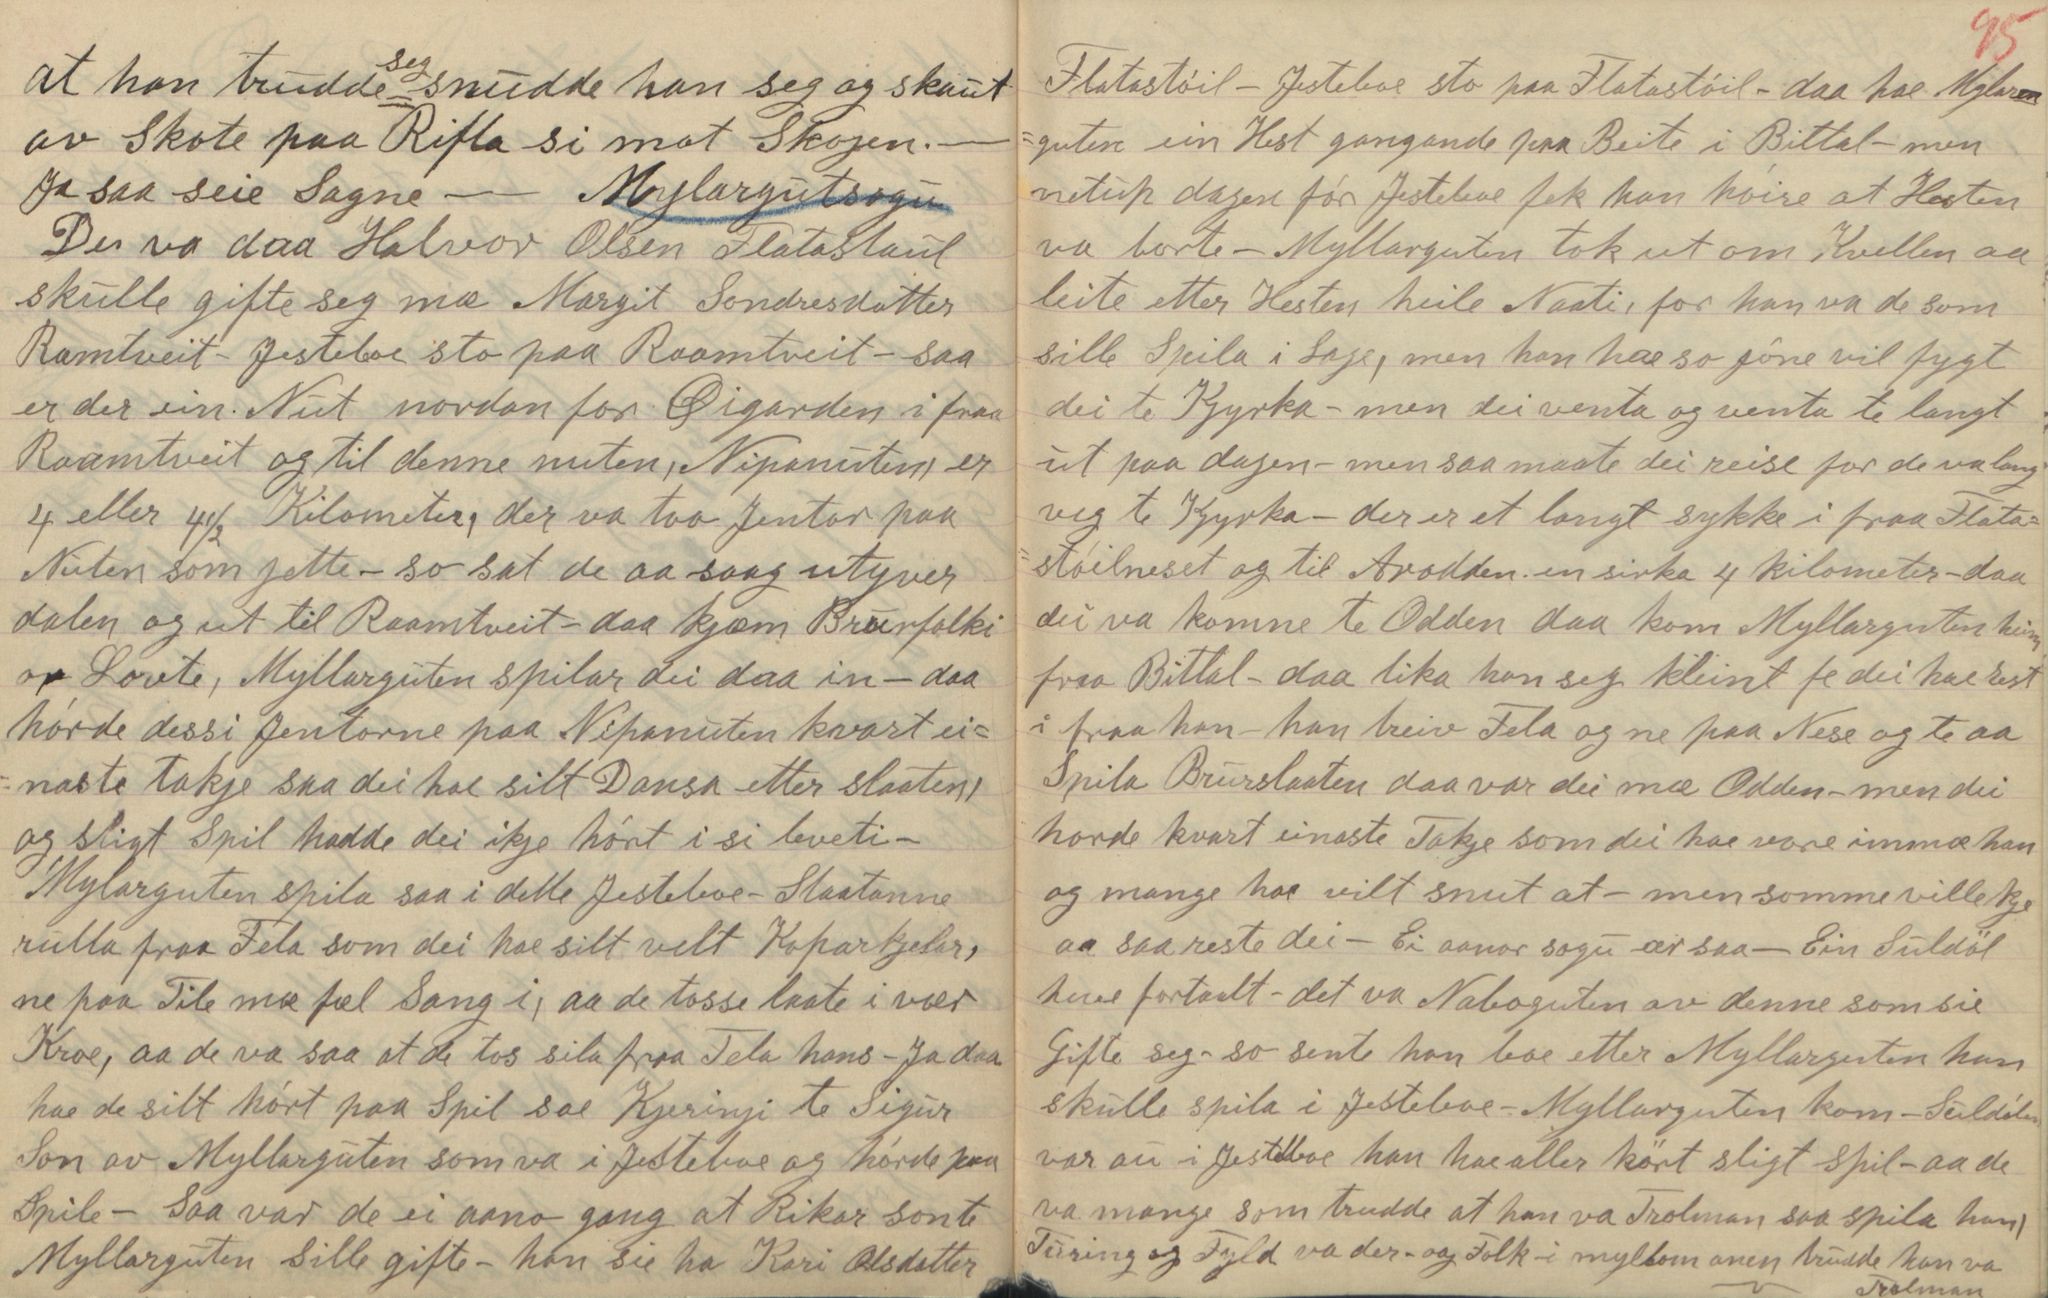 at han trudde seg snudde han seg og skaut
av Skote paa Rifla si mot Skogen. —
Ja saa seie Sagne — Mylargutsogu
De va daa Halvor Olsen Flatastaul
skulle gifte seg mæ Margit Sondresdatter
Ramtveit - Jesteboe sto paa Raamtveit - saa
er der ein. Nut nordan for Øigarden i fraa
Raamtveit og til denne nuten, Nipanuten, er
4 eller 4½ Kilometer, der va too Jentor paa
Nuten som jette - so sat de aa saag utyver
dalen og ut til Raamtveit - daa kjæm Brurfolki
or Lovte, Myllarguten spilar dei daa in - daa
hórde dessi Jentorne paa Nipanuten kvart ei=
=naste takje saa dei hae silt Dansa etter slaaten,
og sligt Spil hadde dei ikje hórt i si leveti -
Mylarguten spila saa i dette Jesteboe - Slaatanne
rulla fraa Fela som dei hae silt velt Koparkjelar,
ne paa Tile mæ fæl Sang i, aa de tosse laate i vær
Kroe, aa de va saa at de tos sila fraa Fela hans - Ja daa
hae de silt hórt paa Spil sae Kjeringi te Sigur
Son av Myllarguten som va i Jesteboe og hórde paa
Spile - Saa var de ei aano gang at Rikar sonte
Myllarguten sille gifte - han sie ha Kari Olsdatter
95
Flatastóil - Jesteboe sto paa Flatastóil - daa hae Mylaren
=guten ein Hest gangande paa Beite i Bittal - men
netup dagen fór Jesteboe fek han hóire at Hesten
va borte - Myllarguten tok ut om Kvellen aa
leite etter Hesten heile Naati, for han va de som
sille Spila i Lage, men han hae so jóne vil fygt
dei te Kjyrka - men dei venta og venta te langt
ut paa dagen - men saa maate dei reise for de va lang
veg te Kjyrka - der er et langt sykke i fraa Flata=
=stóilneset og til Arodden. en sirka 4 kilometer - daa
dei va komne te Odden daa kom Myllarguten heim
fraa Bittal - daa lika han seg kleint fe dei hae rest
i fraa han - han treiv Fela og ne paa Nese og te aa
Spila Brurslaaten daa var dei mæ Odden - men dei
horde kvart einaste Takje som dei hae vore inmæ han
og mange hae vilt snut at - men somme ville kje
aa saa reste dei - Ei aanor sogu ær saa - Ein Suldöl
heve fortaalt - det va Naboguten av denne som sie
Gifte seg - so sente han boe etter Myllarguten han
skulle spila i Jesteboe - Myllarguten kom - Suldólen
var au i Jesteboe han hae aller hört sligt Spil - aa de
va mange som trudde at han va Trolman saa spila han,
Turing og Fyld va der - og Folk i myllom anen trudde han va
Trolman